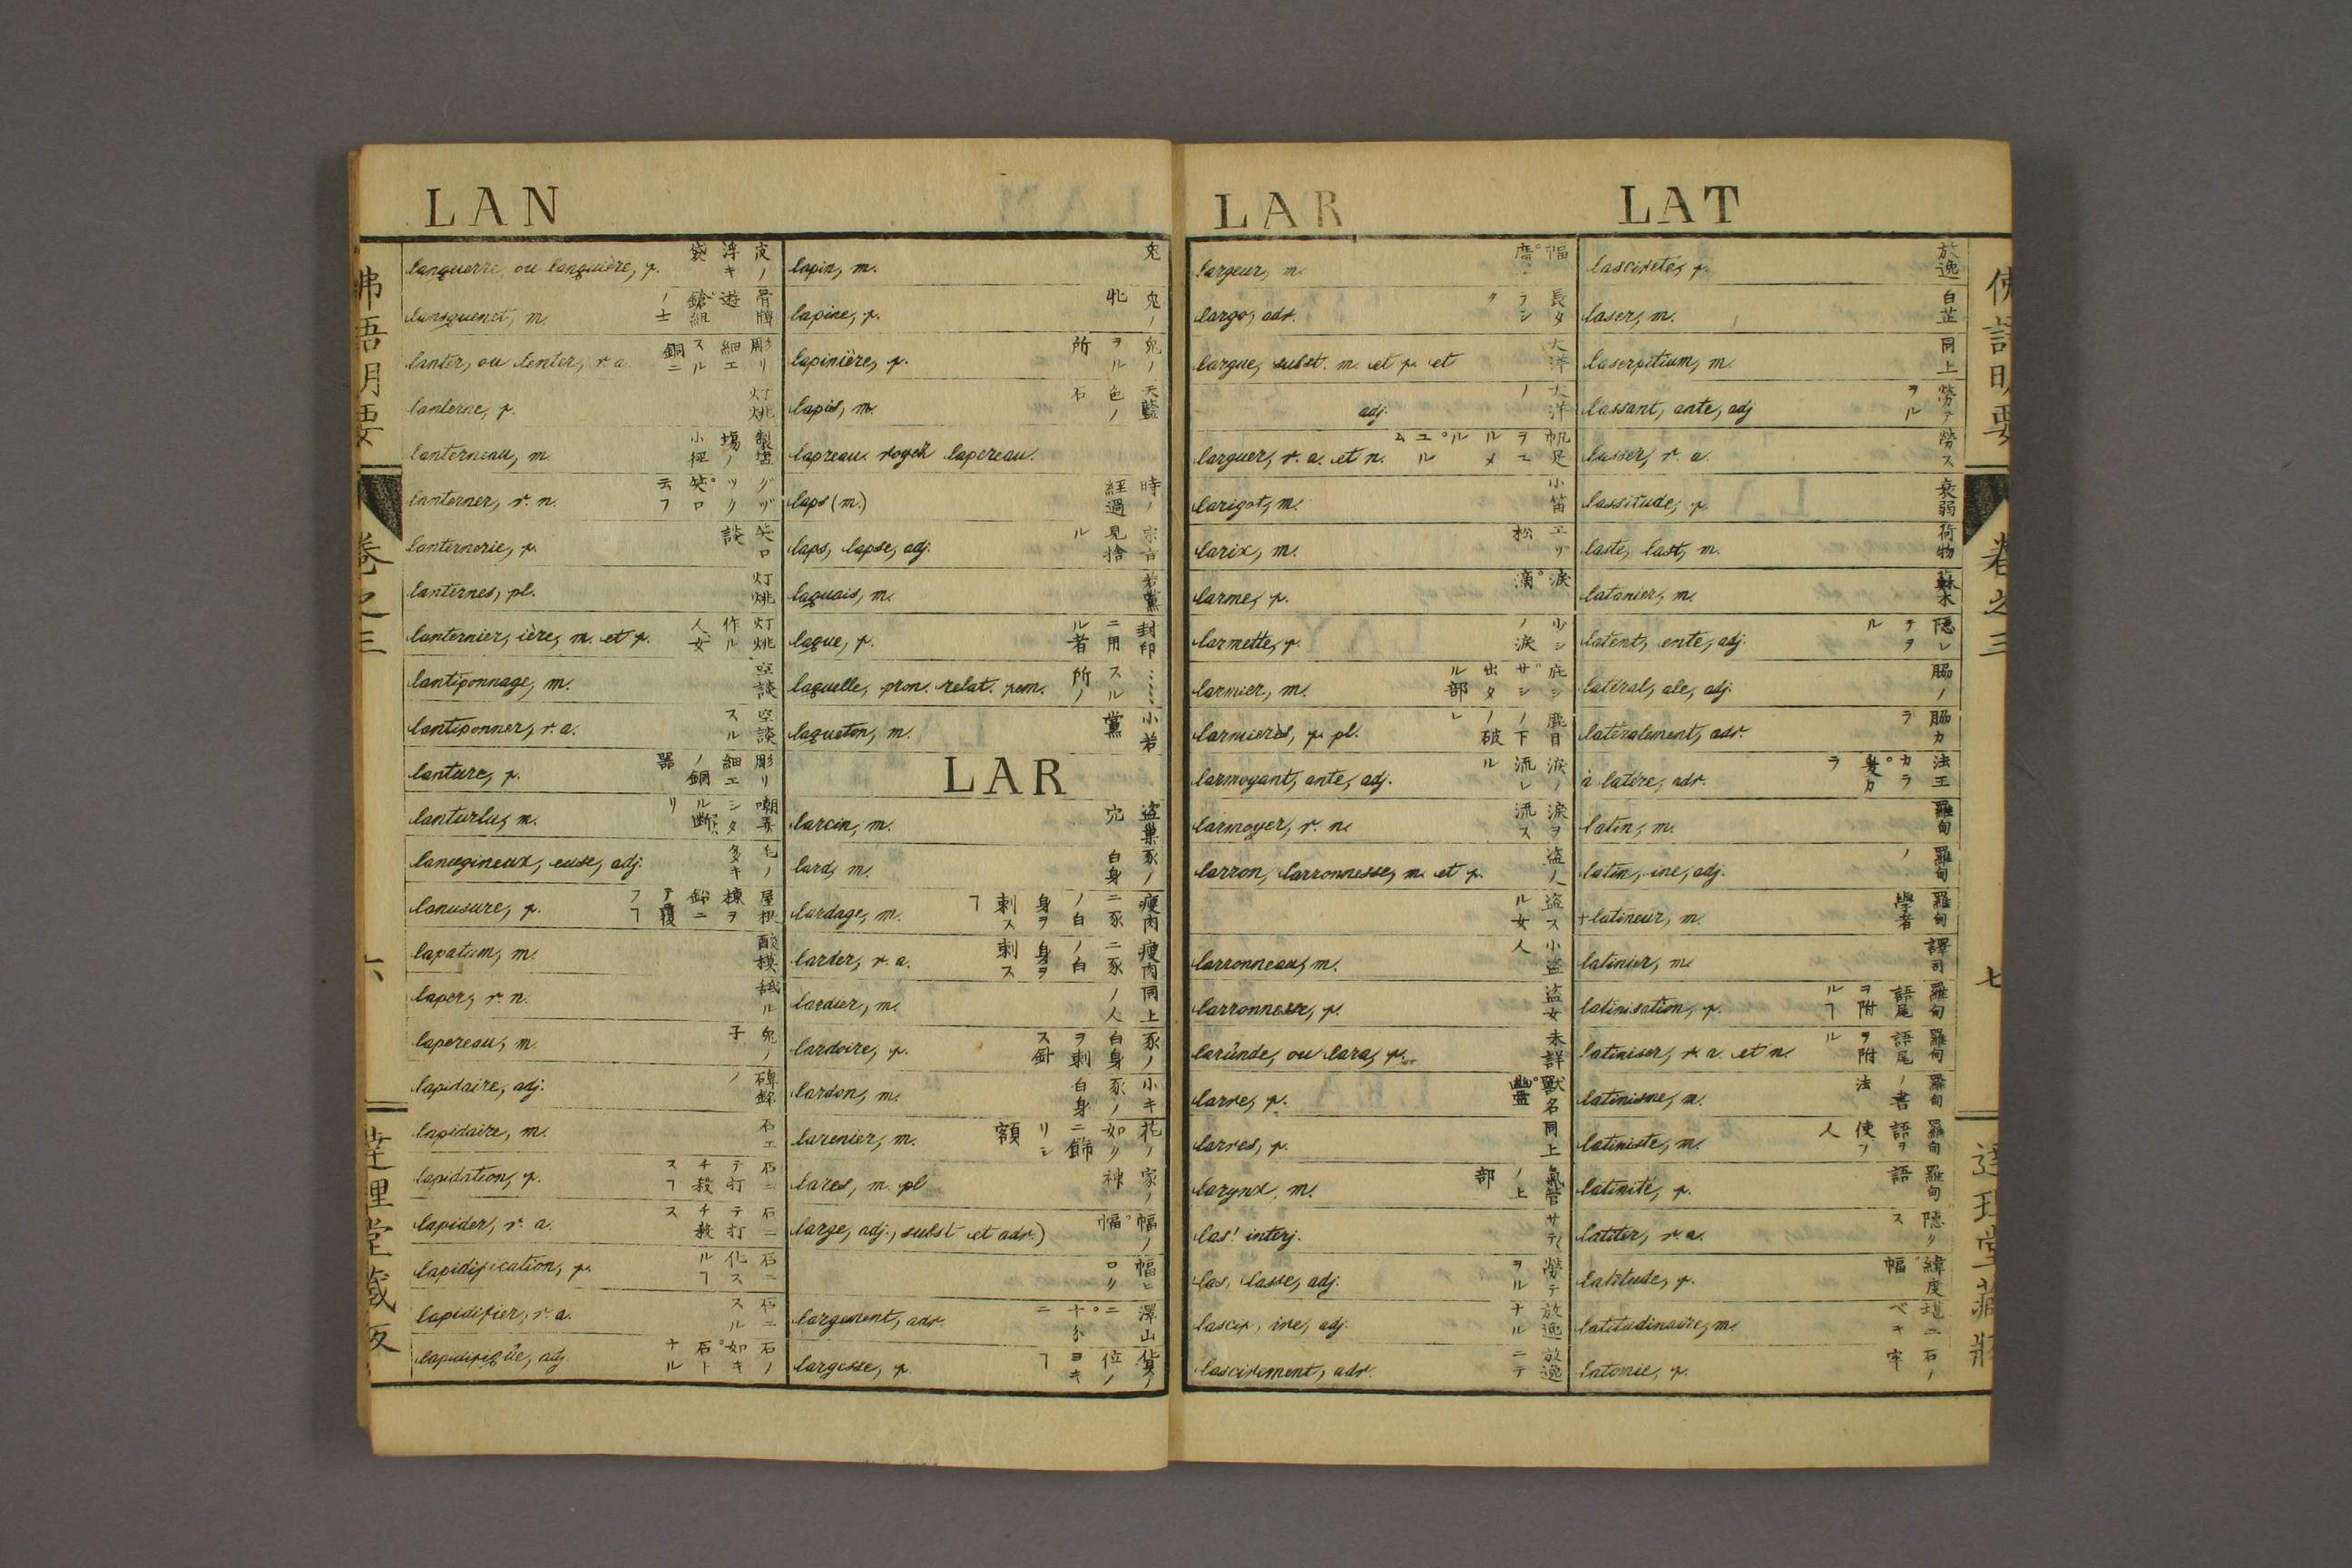 LAN
languerre, ou languière, f. 皮ノ浮キ袋
lansquenet, m. 骨牌遊。鎗組ノ士
lanter, ou lenter, v. a. 彫リ細エスル銅ニ
lanterne, f. 灯燈
lanterneau, m.
lanterner, v. n.
lanternerie, f. 談
lanternes, pl. 灯
lanternier, ière, m. et f. 作ル人、女
lantiponnage, m. 空談
lantiponner, v. a. 空談スル
lanture, f. 彫リ細エノ銅器
lanturlu, m.
lanugineux, euse, adj. 毛ノ多キ
lanusure, f.
lapatum, m. 酸模
laper, v. n. 舐ル
lapereau, m. 兔ノ子
lapidaire, adj. 碑銘ノ
lapidaire, m. 石工
lapidation, f. 石ニテ打チ殺スヿ
lapider, v. a. 石ニテ打チ殺ス
lapidification, f. 石ニ化スルヿ
lapidifier, v. a. 石ニスル
lapidifique, adj. 石ノ如キ。石トナル
lapin, m. 兔
lapine, f. 兔ノ牝
lapinière, f. 兔ノヲル所
lapis, m. 天藍色ノ石
lapreau. voyez lapereau.
laps (m.) 時ノ経過
laps, lapse, adj. 宗旨見捨ル
laquais, m. 若黨
laque, f. 封印ニ用ル者
laquelle, pron. relat. fem. スル所ノ
laqueton, m. 小若黨
LAR
larcin, m. 盗
lard, m. 豕ノ白身
lardage, m. 瘦肉ニ豕ノ白身ヲ刺スヿ
larder, v. a. 瘦肉ニ豕ノ白身ヲ刺ス
lardier, m. 同上ノ人
lardoire, f. 豕ノ白身ヲ刺ス針
lardon, m. 小キ豕ノ白身
larenier, m.
lares, m. pl 家ノ神
large, adj., subst et adv.) 幅ノ。幅
幅ヒロリ
largement, adv. 澤山ニ。十分ニ
largesse, f.
LAR
LAT
largeur, m. 幅。廣
largo, adv. 長タラシク
largue, subst. m. et f. et 大洋
adj. 大洋ノ
larguer, v. a. et n.
larigot, m. 小笛
larix, m. エゾ松
larme, f. 涙。滴
larmette, f. 少シノ涙
larmier, m.
larmières, f. pl. 鹿目ノ下ノ破レ
larmoyant, ante, adj. 涙ノ流レル
larmoyer, v. n. 涙ヲ流ス
larron, larronnesse, m. et f. 盗人
盗スル女
larronneau, m. 小盗人
larronnesse, f. 盗女
larunde, ou lara, f. 未詳
larve, f. 獸名。幽靈
larves, f. 同上
larynx, m. 氣管ノ上部
las! interj.
las, lasse, adj. 勞テヲル
lascif, ive, adj. 放逸ナル
lascivement, adv. 放逸ニテ
lasciveté, f. 放逸
laser, m. 白芷
laserpitium, m. 同上
lassant, ante, adj
lasser, v. a. 勞ス
lassitude, f. 衰弱
laste, last, m. 荷物
latanier, m. 蘇木
latent, ente, adj. 隠レテヲル
latéral, ale, adj. 脇ノ
latéralement, adv. 脇カラ
à latére, adv. 法王カラ。
latin, m. 羅甸
latin, ine, adj. 羅甸ノ
+latineur, m. 羅甸學者
latinier, m. 譯司
latinisation, f. 羅甸語尾ヲ附ルヿ
latiniser, v. a. et n. 羅甸語尾ヲ附ル
latinisme, m. 羅甸ノ書法
latiniste, m. 羅甸語ヲ使フ人
latinité, f. 羅甸語
latiter, v. a. 隠ス
latitude, f. 緯度。幅
latitudinaire, m.
latomie, f. 石ノ牢
佛語明要
卷之三
六
達理堂藏版
佛語明要
卷之三
七
達理堂藏版